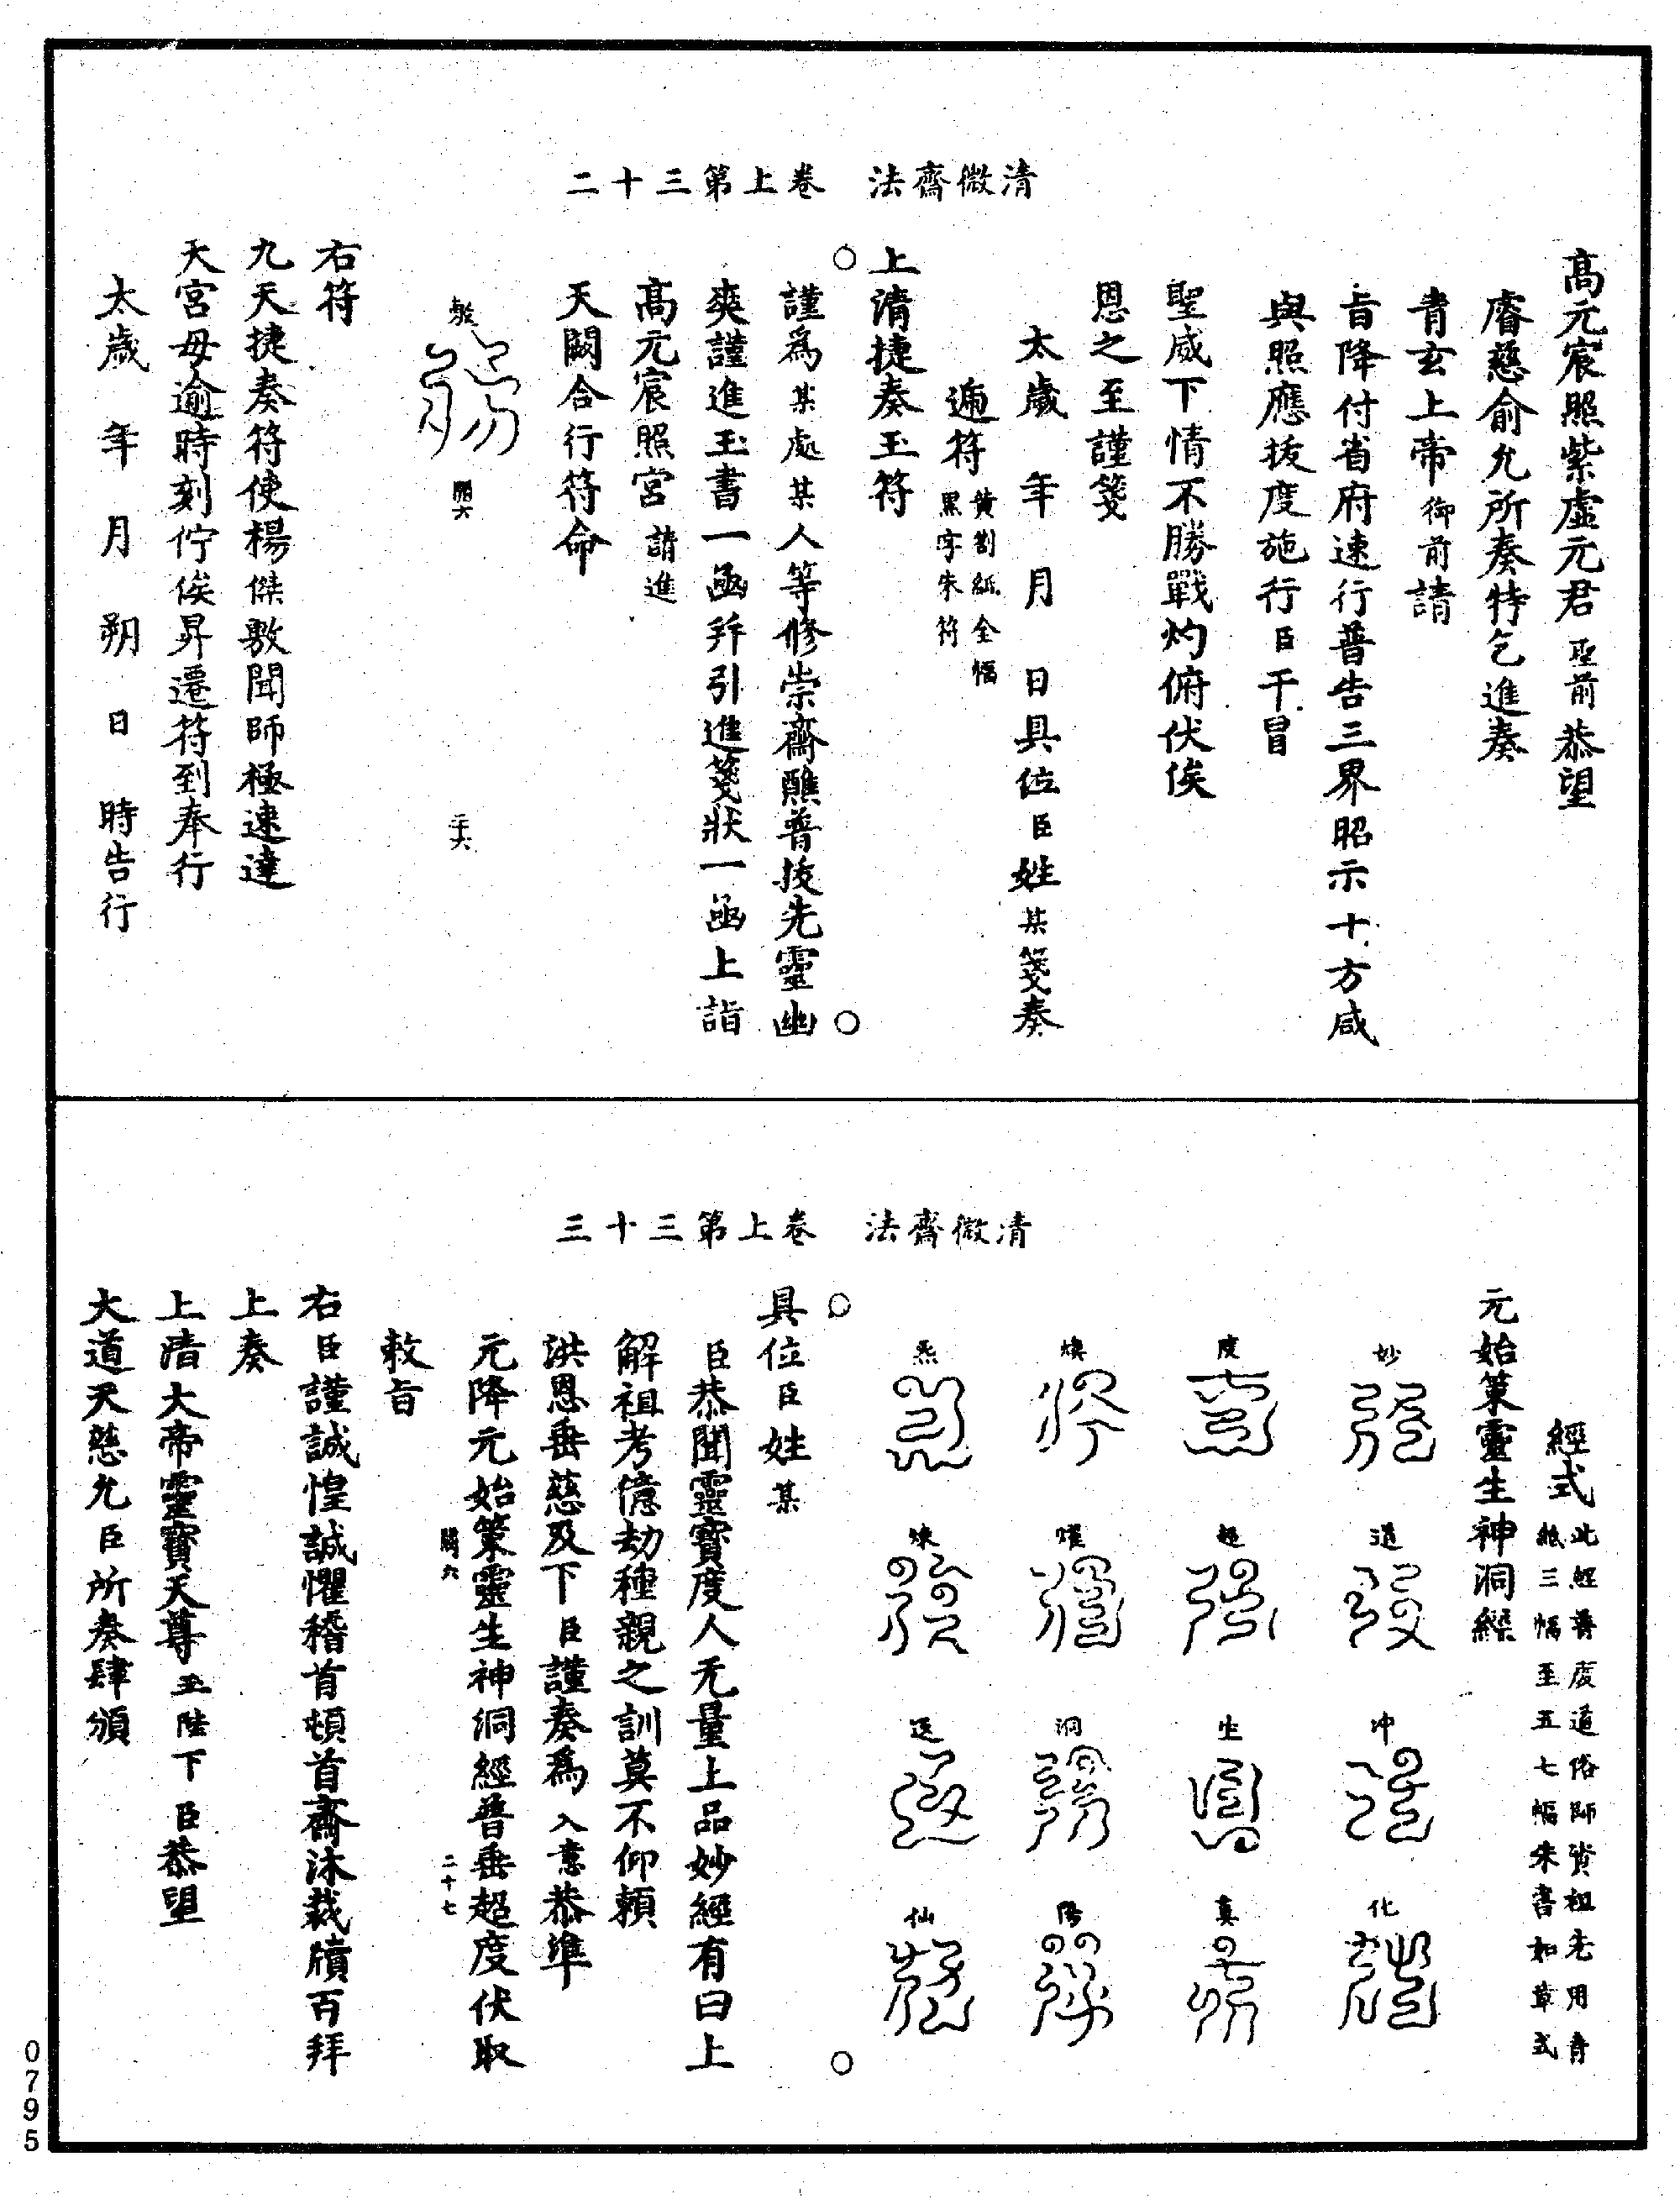 清微齋法　卷上第三十二
高元宸照紫虛元君聖前恭望
睿慈俞允所奏特乞進奏
青玄上帝御前請
旨降付省府速行普告三界昭示十方咸
與照應拔度施行臣干冒
聖威下情不勝戰灼俯伏俟
恩之至謹箋
太歲　年　月　日具位臣姓某箋奏
遞符黃劄紙全幅
黑字朱符
上清捷奏玉符
謹為某處某人等修崇齋醮普拔先靈幽
爽謹進玉書一函并引進箋狀一函上詣
高元宸照宮請進
天闕合行符命
敕
右符
九天捷奏符使楊傑敷聞師極速達
天宮毋逾時刻佇俟昇遷符到奉行
太歲　年　月　朔　日　時告行
清微齋法　卷上第三十三
經式此經普度道俗師資祖先用青
紙三幅至五七幅朱書如章式
元始策靈生神洞經
妙　道　冲　化
度　超　生　真
煥　耀　洞　陽
炁　煉　送　仙
具位臣姓某
臣恭聞靈寶度人无量上品妙經有曰上
解祖考億劫種親之訓莫不仰賴
洪恩垂慈及下臣謹奏為入意恭準
元降元始策靈生神洞經普垂超度伏取
二十七
敕旨
右臣謹誠惶誠懼稽首頓首齋沐裁牘百拜
上奏
上清大帝靈寶天尊玉陛下臣恭望
大道天慈允臣所奏肆頒
0795